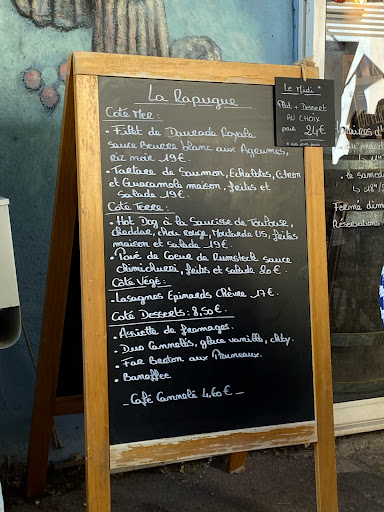 La Rapugue
Coté Mer:
• Filet de Daurade Royale
sauce Beurre blanc aux Agrumes,
riz noir 19€.
• Tartare de Saumon, Echalotes, Citron
et Guacamole maison, frites et
salade 19€.
Coté Terre:
• Hot Dog à la Saucisse de Toulouse,
cheddar, chou rouge, Moutarde US, frites
maison et salade 19€.
• Pavé de Coeur de Rumsteck sauce
chimichurri, frites et salade 20€.
Côté Végé:
• Lasagnes Epinards Chèvre 17€.
Coté Desserts: 8,50€.
• Assiette de fromages.
• Duo Cannelés, glace vanille, chty.
• Far Breton aux Pruneaux.
• Banoffee
- Café Cannelé 4,60€ -
Le Midi *
Plat + Dessert
AU CHOIX
pour 24€
le samedi
Fermé dim
Réservations